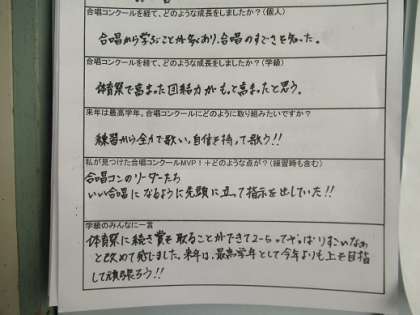 合唱コンクールを経て、どのような成長をしましたか？(個人)
合唱から学ぶことが多くあり、合唱のすごさを知った。
合唱コンクールを経て、どのような成長をしましたか？(学級)
体育祭で高まった団結力がもっと高まったと思う。
来年は最高学年。合唱コンクールにどのように取り組みたいですか？
練習から全力で歌い、自信を持って歌う!!
私が見つけた合唱コンクールMVP！＋どのような点が？(練習時も含む)
合唱コンのリーダーたち
いい合唱になるように先頭に立って指示を出していた!!
学級のみんなに一言
体育祭に続き賞を取ることができて2-5ってやっぱりすごいなぁ
と改めて感じました。来年は、最高学年として今年よりも上を目指
して頑張ろう!!